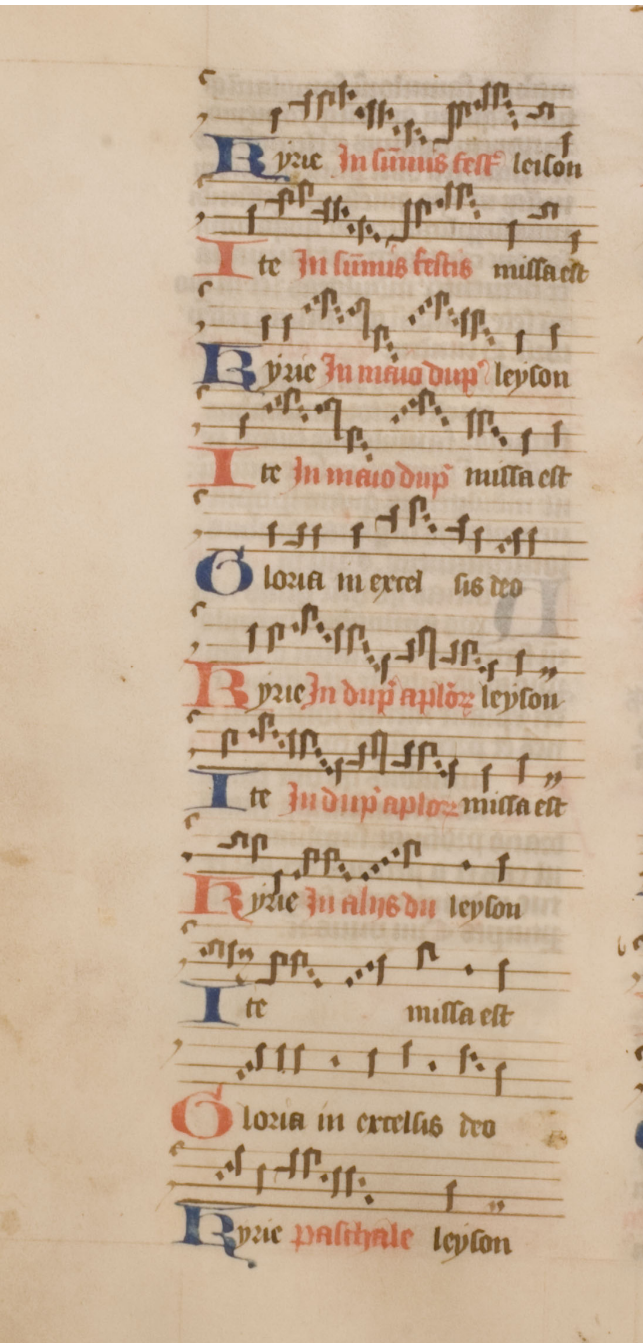 Kyrie In sūmis fest leison
Ite In sūmis festis missa est
Kyrie In maio dup leyson
Ite In maio dup missa est
Gloria in excel sis deo
Kyrie In dup aploꝝ leyson
Ite In dup aploꝝ missa est
Kyrie In alijs du leyson
Ite missa est
Gloria in excelsis deo
Kyrie paschale leyson